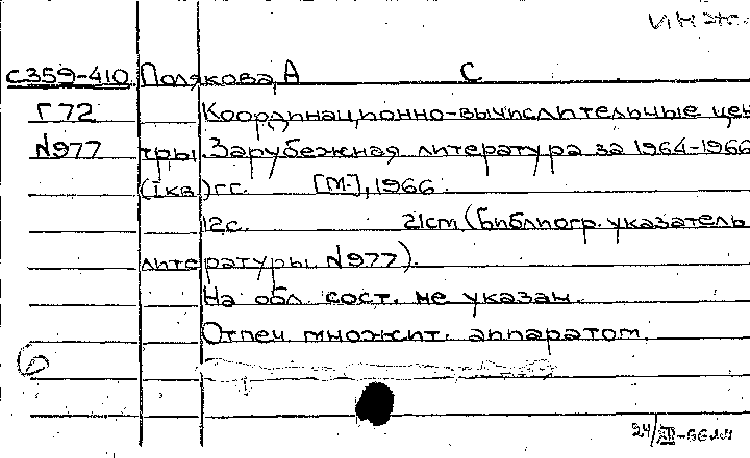 инж.
С359-410 Полякова, А С
Г72 Координационно-вычислительные цен
N977 тры. Зарубежная литература за 1964-1966
(I кв) гг. [М.], 1966.
12с. 21см (Библиогр. указатель
литературы N977).
На обл. сост. не указан.
Отпеч. множит. аппаратом.
6
24/XII-66